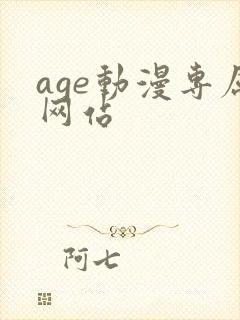 age動漫専属
网站
阿七